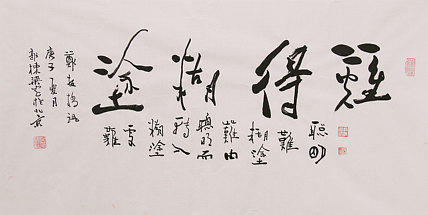 難得糊塗
聰明
難
糊塗
難由
聰明而
轉入
糊塗
更
難
鄭板橋語
庚子夏月